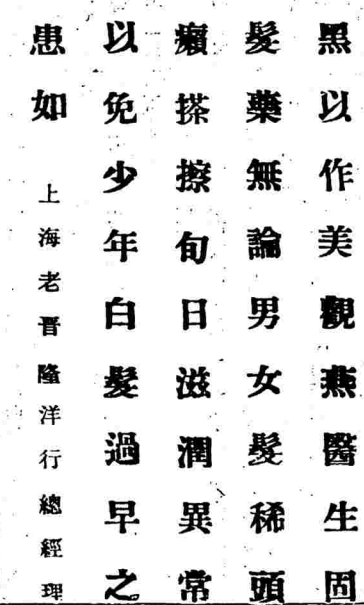 黑以作美觀燕醫生固
髮藥無論男女髮稀頭
癩搽擦旬日滋潤異常
以免少年白髮過早之
患如
上海老晋隆洋行總經理